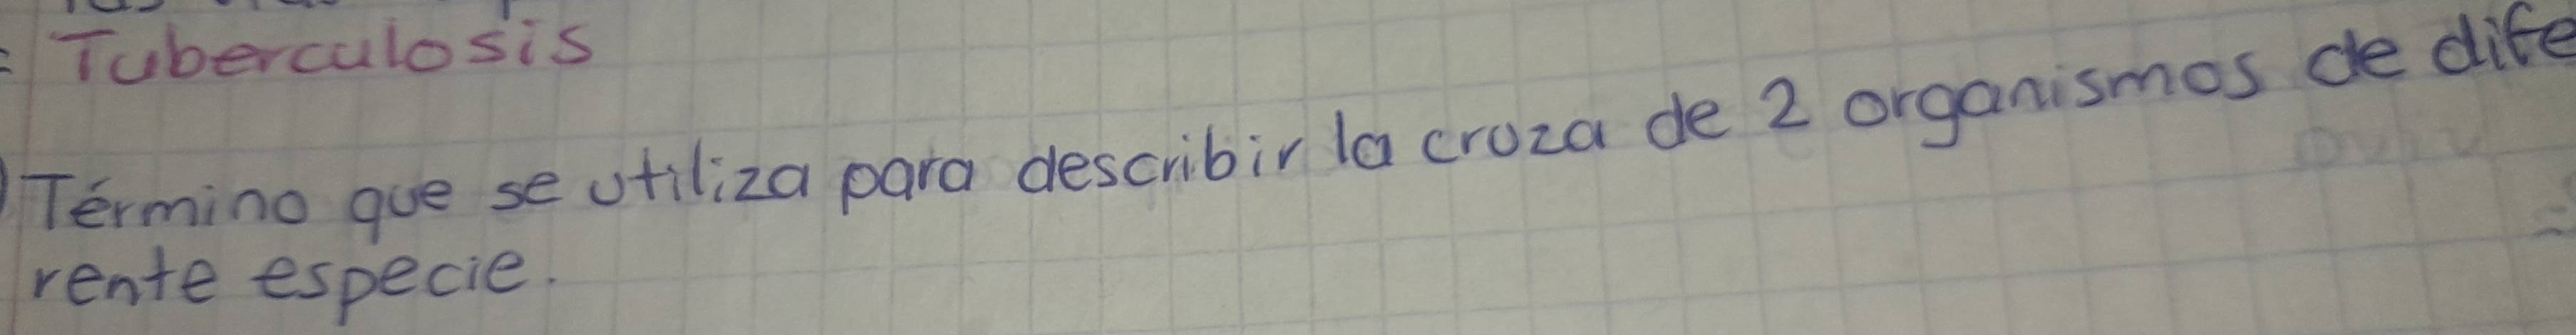 = Tuberculosis
) Término que se utiliza para describir la cruza de 2 organismos de dife
rente especie.